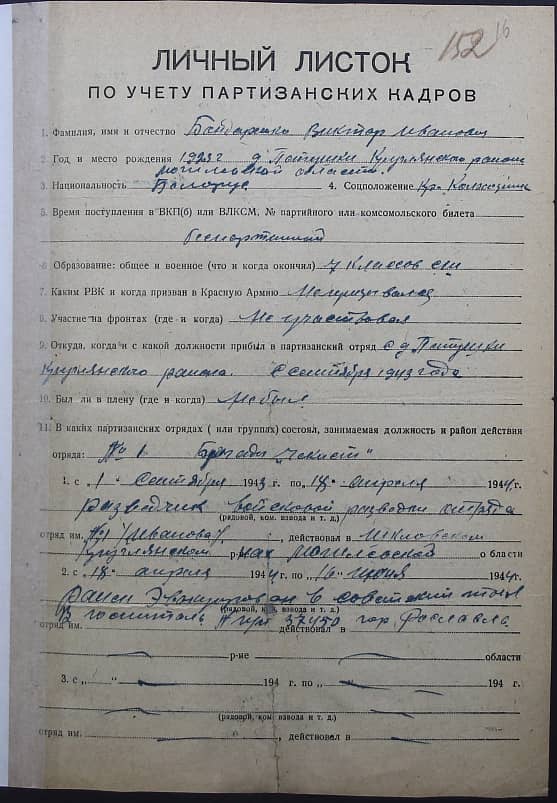 152 16
ЛИЧНЫЙ ЛИСТОК
ПО УЧЕТУ ПАРТИЗАНСКИХ КАДРОВ
1. Фамилия, имя и отчество Виктор Иванович
2. Год и место рождения 1923г д. Круглянского района
могилевской области.
3. Национальность Белорус 4. Соцположение Кр. Колхозник
5. Время поступления в ВКП(б) или ВЛКСМ, № партийного или комсомольского билета
беспартийный
6. Образование: общее и военное (что и когда окончил) 7 классов
7. Каким РВК и когда призван в Красную Армию Не призывался
8. Участие на фронтах (где и когда) Не участвовал
9. Откуда, когда и с какой должности прибыл в партизанский отряд с д.
Круглянского района. с сентября 1943 года
10. Был ли в плену (где и когда) Не был
11. В каких партизанских отрядах (или группах) состоял, занимаемая должность и район действия
отряда: №1 Бригады "Чекист"
1. с „1" Сентября 1943 г. по „18" апреля 1944 г.
разведчик войсковой разведки отряда
(рядовой, ком. взвода и т. д.)
отряд им. №1 /Иванова/, действовал в Шкловском
Круглянском р-нах могилевской области
2. с „18" апреля 1944 г. по „16" июня 1944 г.
Ранен Эвакуирован в советский тыл
(рядовой, ком. взвода и т. д.)
В госпиталь ппг 37450 гор. Рославль
отряд им. действовал в
р-не области
3. с „ " 194 г. по „ " 194 г.
(рядовой, ком. взвода и т. д.)
отряд им. , действовал в